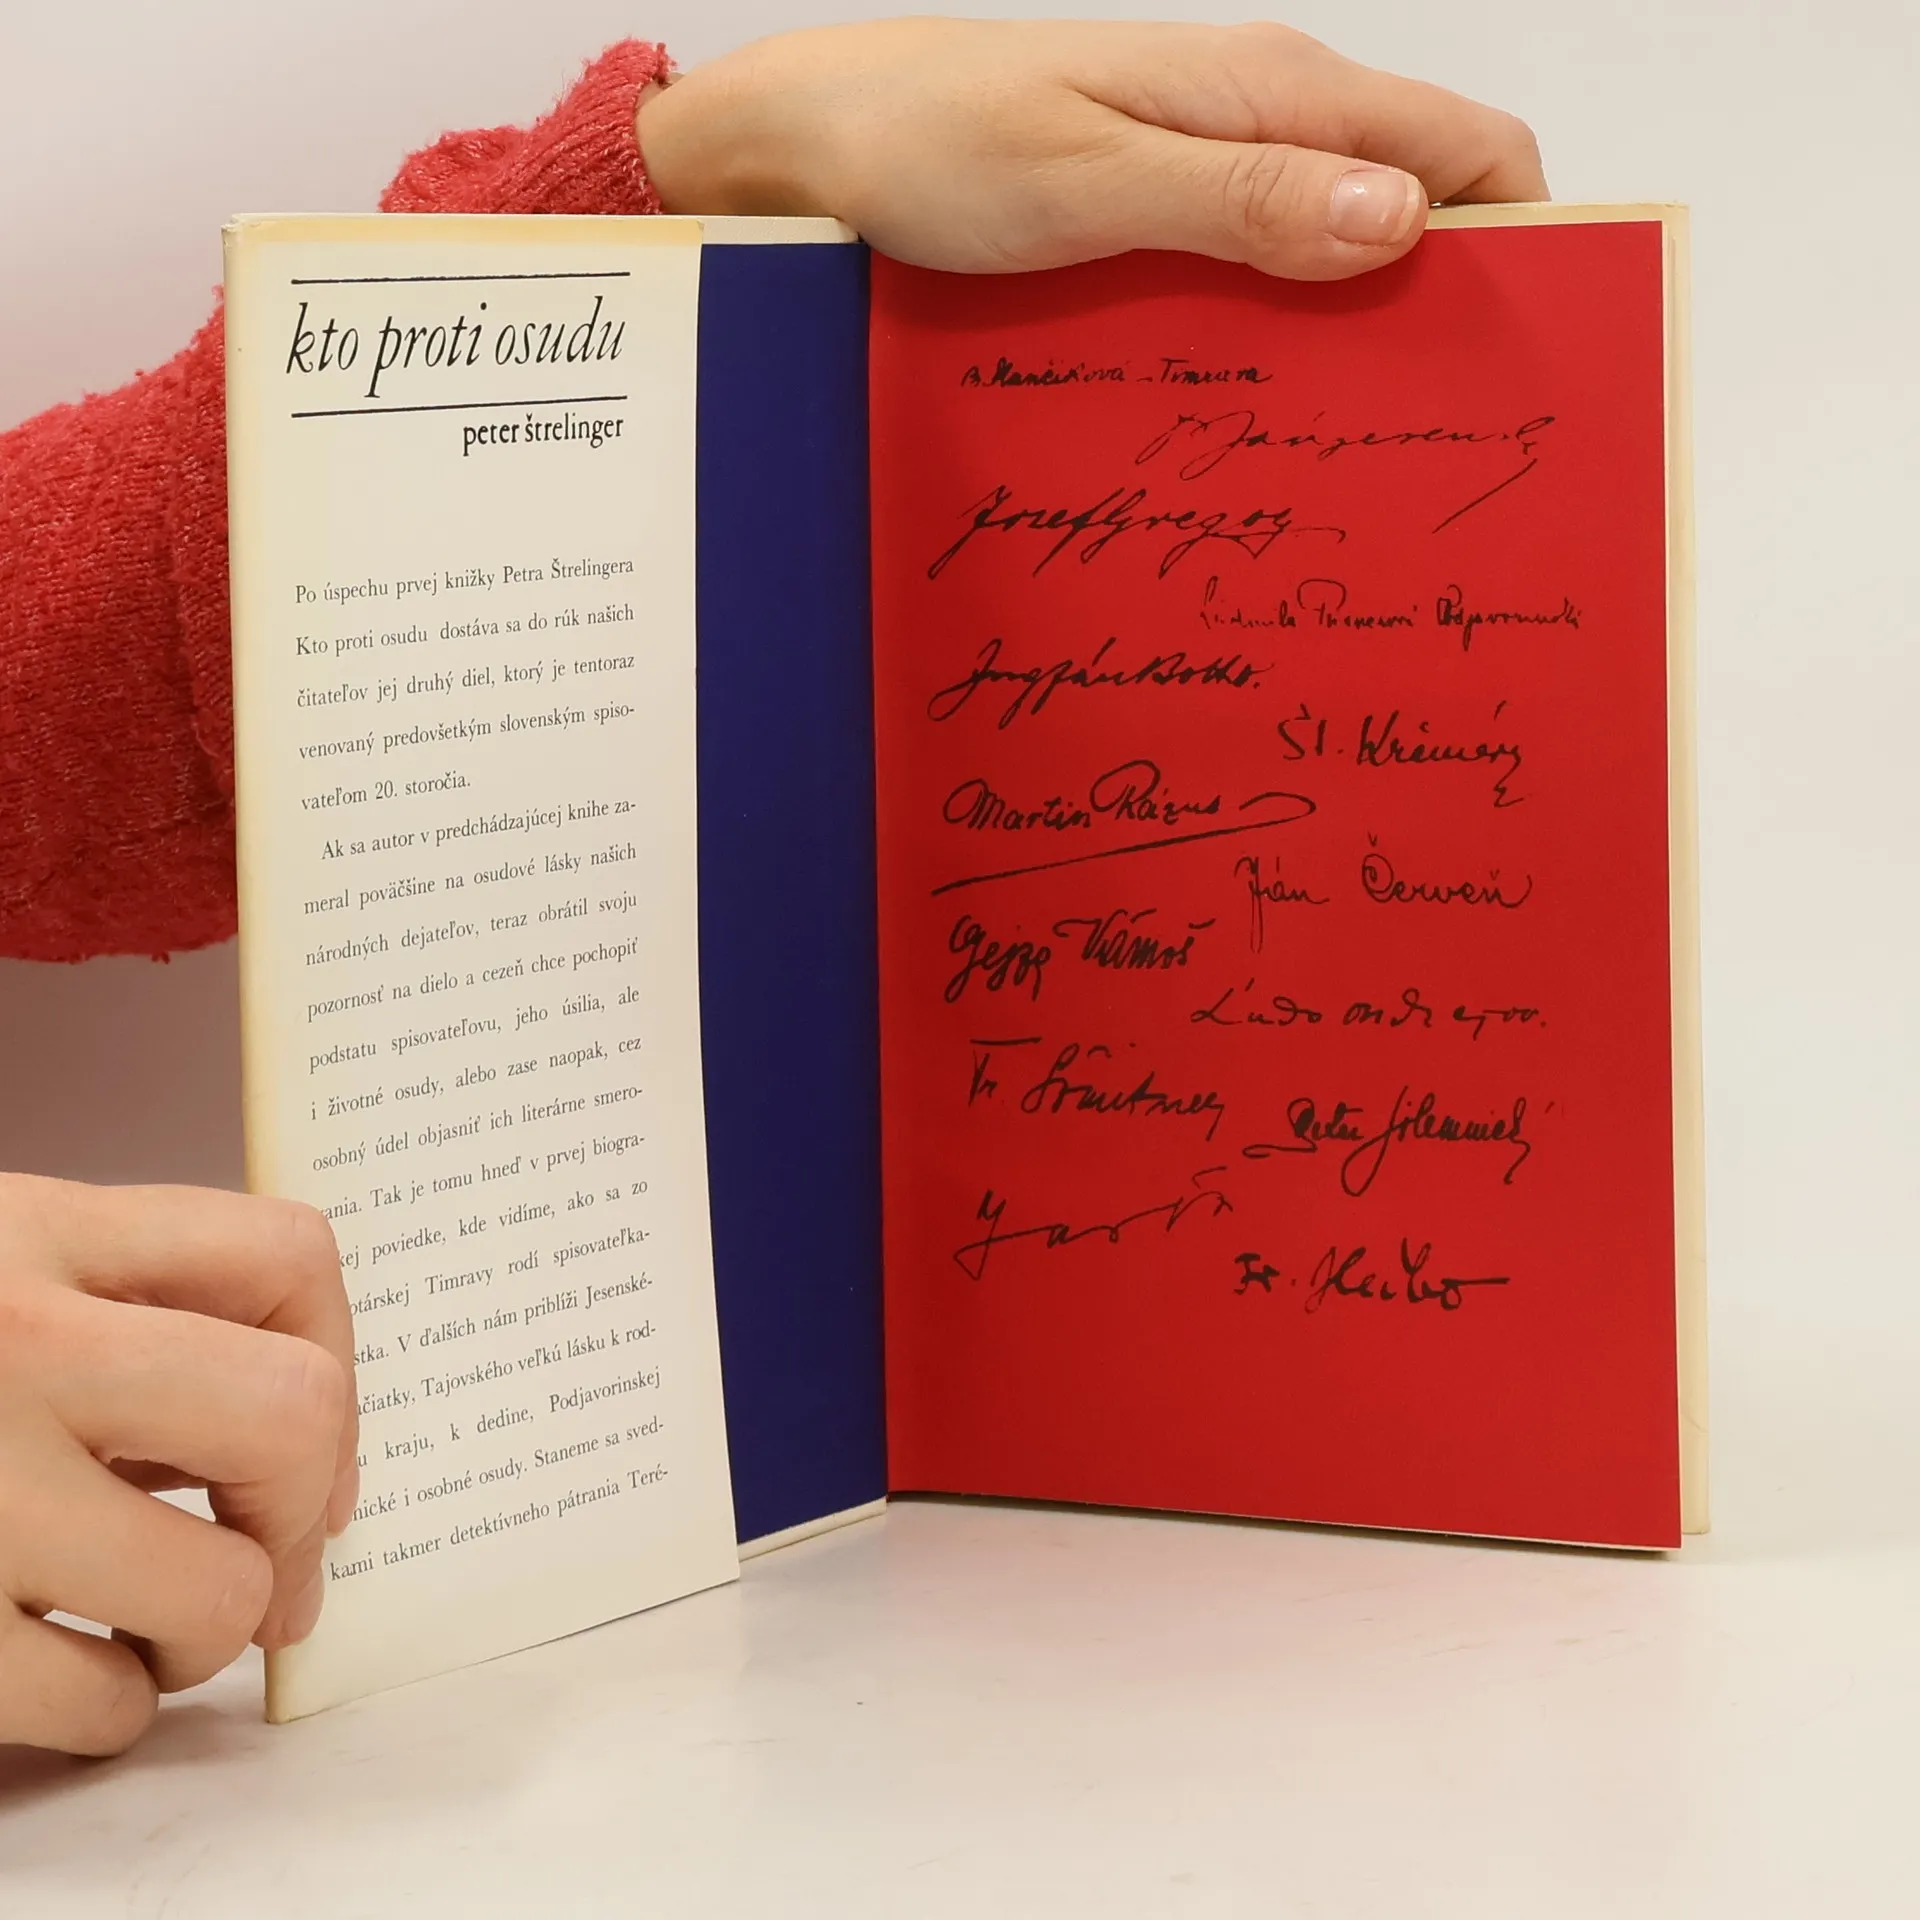 kto proti osudu
peter štrelinger
Po úspechu prvej knižky Petra Štrelingera
Kto proti osudu dostáva sa do rúk našich
čitateľov jej druhý diel, ktorý je tentoraz
venovaný predovšetkým slovenským spiso-
vateľom 20. storočia.
Ak sa autor v predchádzajúcej knihe za-
meral poväčšine na osudové lásky našich
národných dejateľov, teraz obrátil svoju
pozornosť na dielo a cezeň chce pochopiť
podstatu spisovateľovu, jeho úsilia, ale
i životné osudy, alebo zase naopak, cez
osobný údel objasniť ich literárne smero-
ania. Tak je tomu hneď v prvej biogra-
kej poviedke, kde vidíme, ako sa zo
otárskej Timravy rodí spisovateľka-
stka. V ďalších nám priblíži Jesenské-
čiatky, Tajovského veľkú lásku k rod-
u kraju, k dedine, Podjavorinskej
nické i osobné osudy. Staneme sa sved-
kami takmer detektívneho pátrania Teré-
B. Slančíková - Timrava
Jozef Gregor
Ľudmila Podjavorinská
Ing Ján Botto.
Št. Krčméry
Martin Rázus
Ján Červeň
Gejza Vámoš
Ľudo Ondrejov.
Fr. Švantner
Peter Jilemnický
Fr. Hečko